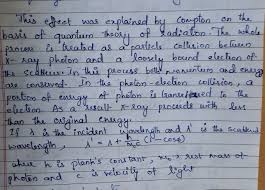 This effect was explained by Compton on the
basis of quantum theory of radiation. The whole
process is treated as a particle collision between
X-ray photon and a loosely bound electron of
the scatterer. In this process both momentum and energy
are conserved. In the photon-electron collision, a
portion of energy of photon is transferred to the
electron. As a result X-ray proceeds with less
than the original energy.
If λ is the incident wavelength and λ' is the scattered
wavelength, λ' = λ + h/m₀c (1-cosθ)
where h is plank's constant, m₀ = rest mass of
photon and c is velocity of light